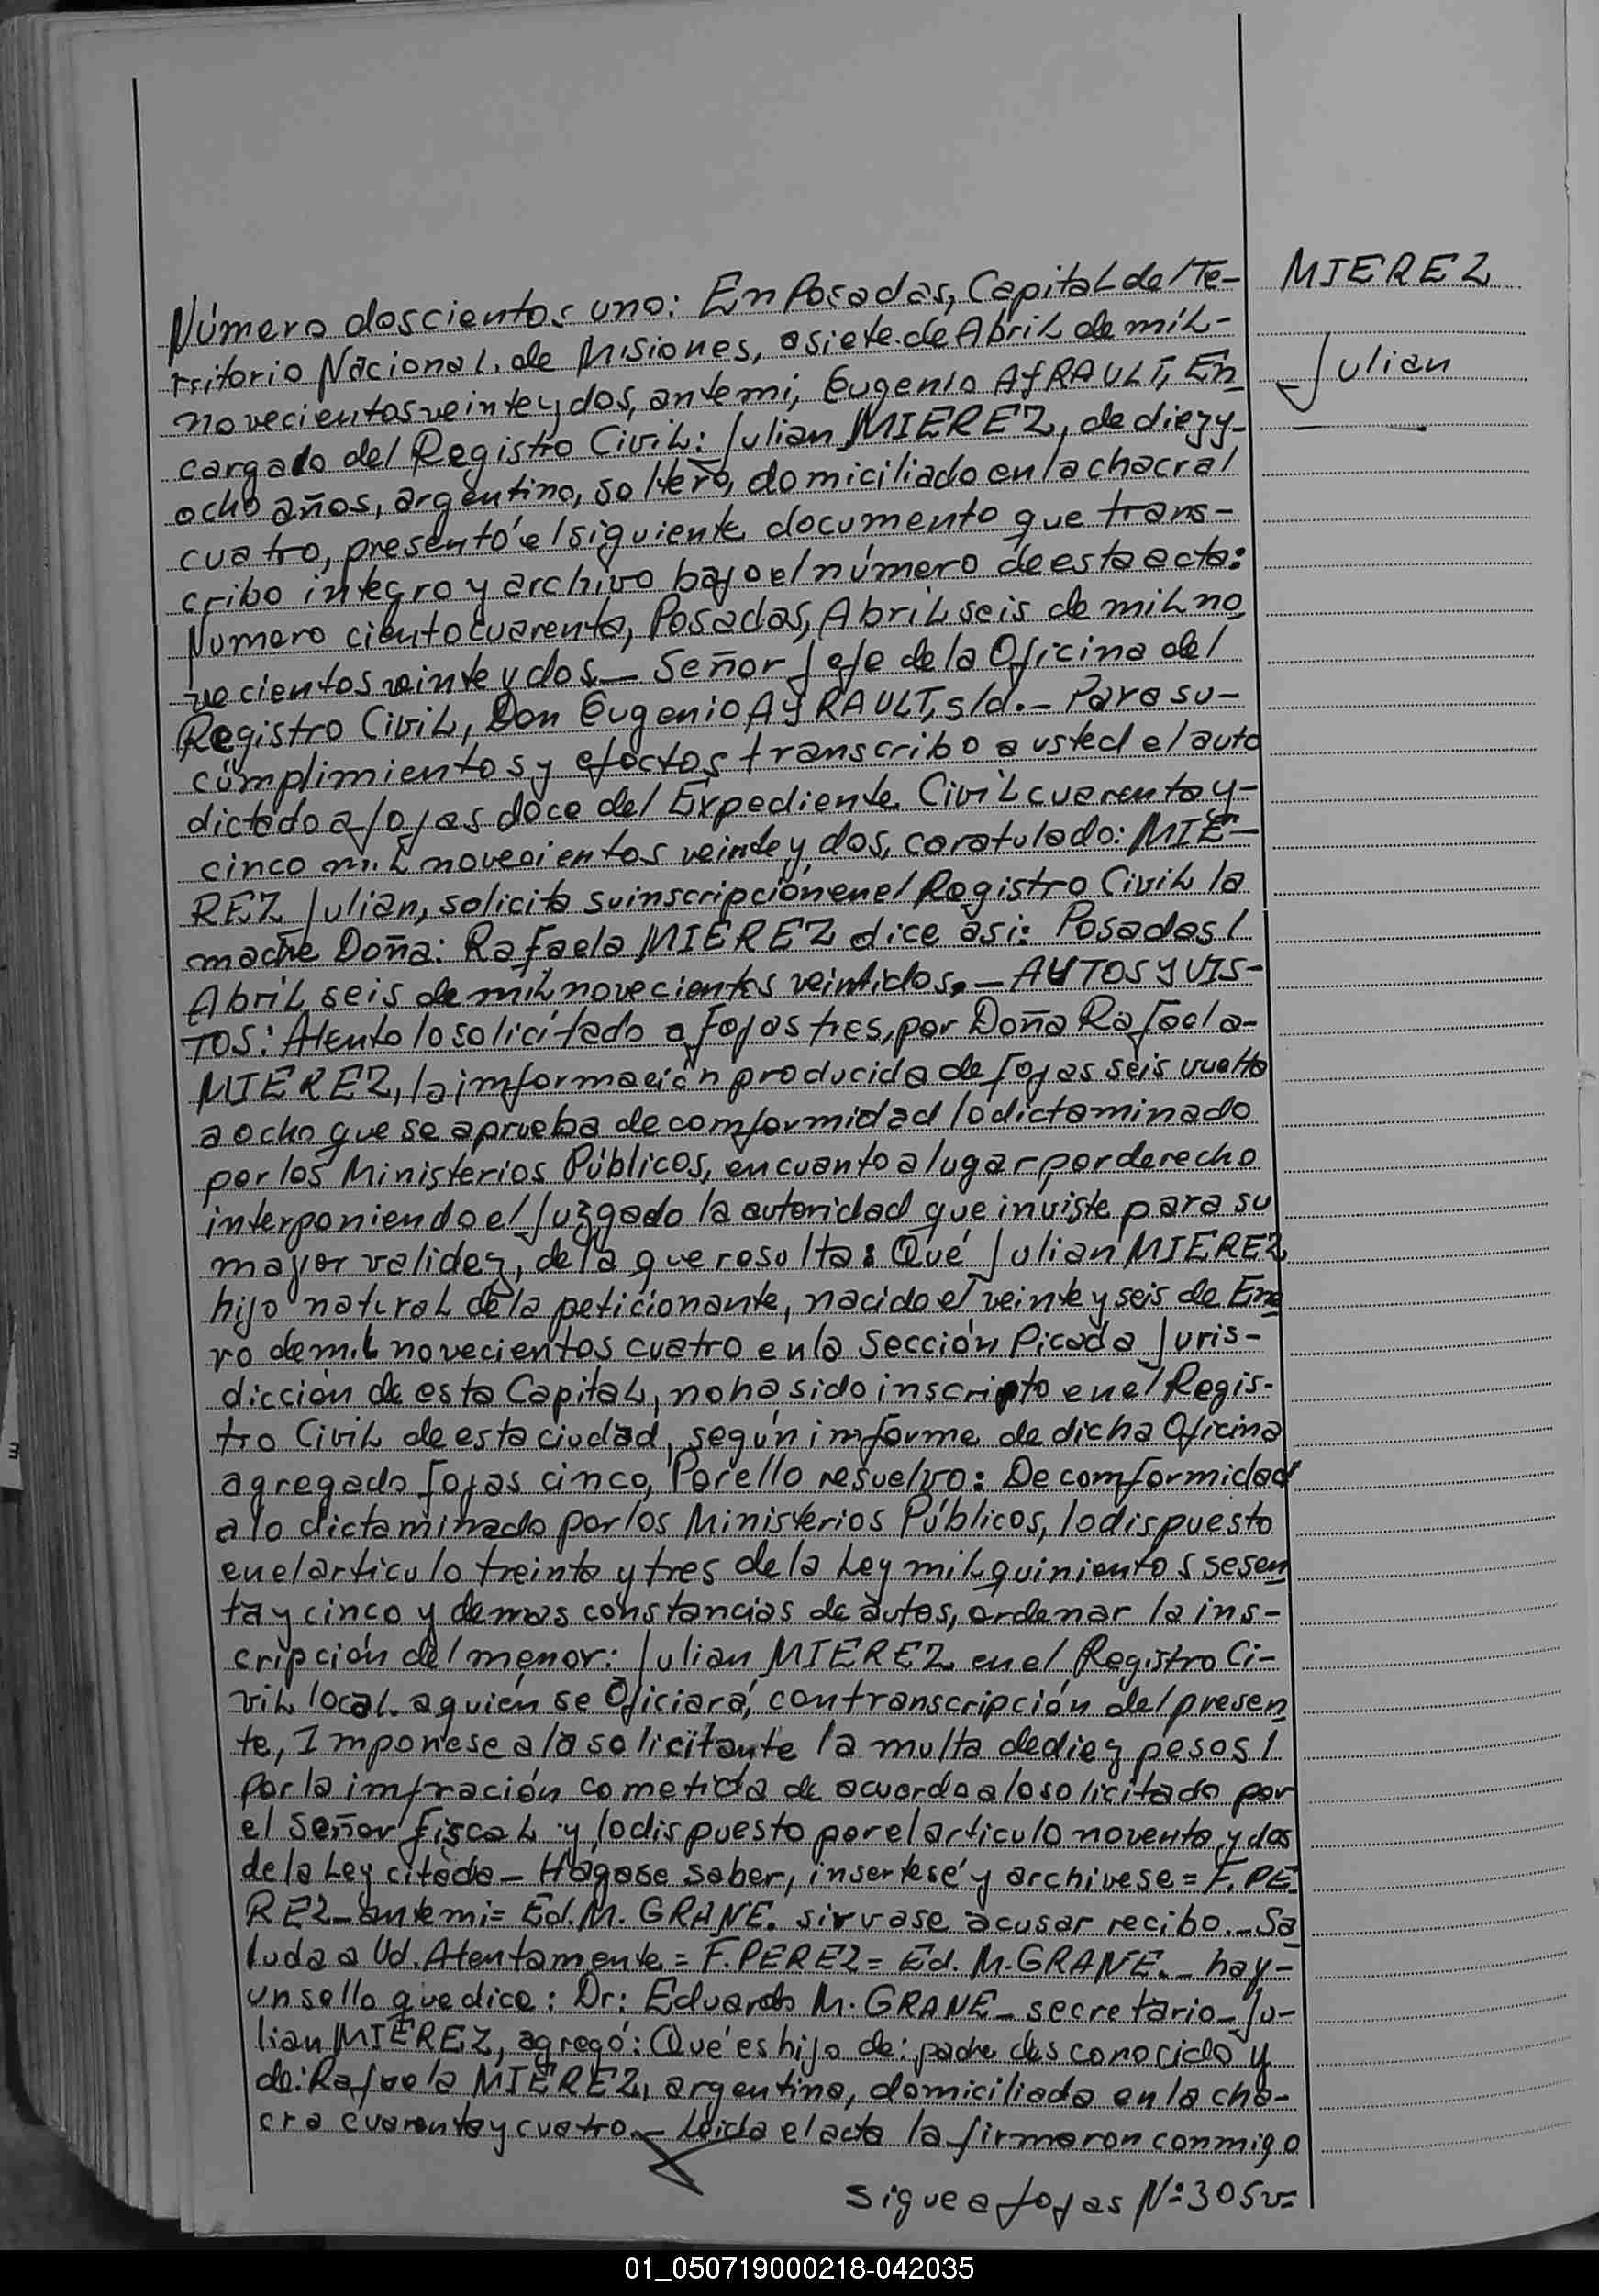 MIEREZ
Julian
Número doscientos uno: En Posadas, Capital del Te-
rritorio Nacional de Misiones, a siete de Abril de mil-
novecientos veinte y dos, ante mi, Eugenio AYRAULT, En
cargado del Registro Civil: Julian MIEREZ, de diez y-
ocho años, argentino, soltero, domiciliado en la chacra /
cuatro, presentó el siguiente documento que trans-
cribo integro y archivo bajo el número de esta acta:
Número ciento cuarenta, Posadas, Abril seis de mil no
vecientos veinte y dos._ Señor Jefe de la Oficina del
Registro Civil, Don Eugenio AYRAULT, s/d._ Para su-
cumplimientos y efectos transcribo a usted el auto
dictado a fojas doce del Expediente Civil cuarenta y-
cinco mil novecientos veinte y dos, caratulado: MIE-
REZ Julian, solicita su inscripción en el Registro Civil la
madre Doña: Rafaela MIEREZ dice asi: Posadas /
Abril seis de mil novecientos veintidos._ AUTOS Y VIS-
TOS: Atento lo solicitado a fojas tres, por Doña Rafaela-
MIEREZ, la imformación producida de fojas seis vuelta
a ocho que se aprueba de comformidad lo dictaminado
por los Ministerios Públicos, en cuanto a lugar por derecho
interponiendo el Juzgado la autoridad que inviste para su
mayor validez, de la que resulta: Qué Julian MIEREZ
hijo natural de la peticionante, nacido el veinte y seis de Ene
ro de mil novecientos cuatro en la Sección Picada Juris-
dicción de esta Capital, no ha sido inscripto en el Regis-
tro Civil de esta ciudad, según imforme de dicha Oficina
agregado fojas cinco, Por ello resuelvo: De comformidad
a lo dictaminado por los Ministerios Públicos, lo dispuesto
en el articulo treinta y tres de la Ley mil quinientos sesen
ta y cinco y demas constancias de autos, ordenar la ins-
cripción del menor: Julian MIEREZ en el Registro Ci-
vil local a quién se Oficiará, con transcripción del presen
te, Imponese a la solicitante la multa de diez pesos /
por la imfración cometida de acuerdo a lo solicitado por
el Señor Fiscal y lo dispuesto por el articulo noventa y dos
de la Ley citada_ Hágase saber, insertesé y archivese = F. PE
REZ_ ante mi= Ed. M. GRANE. sirvase acusar recibo._ Sa
luda a Ud. Atentamente = F. PEREZ = Ed. M. GRANE._ hay-
un sello que dice: Dr: Eduardo M. GRANE_ secretario_ Ju-
lian MIEREZ, agregó: Qué es hijo de: padre desconocido y
de: Rafaela MIEREZ, argentina, domiciliada en la cha-
cra cuarenta y cuatro._ Leida el acta la firmaron conmigo
sigue a fojas Nº 305v=
01_050719000218-042035